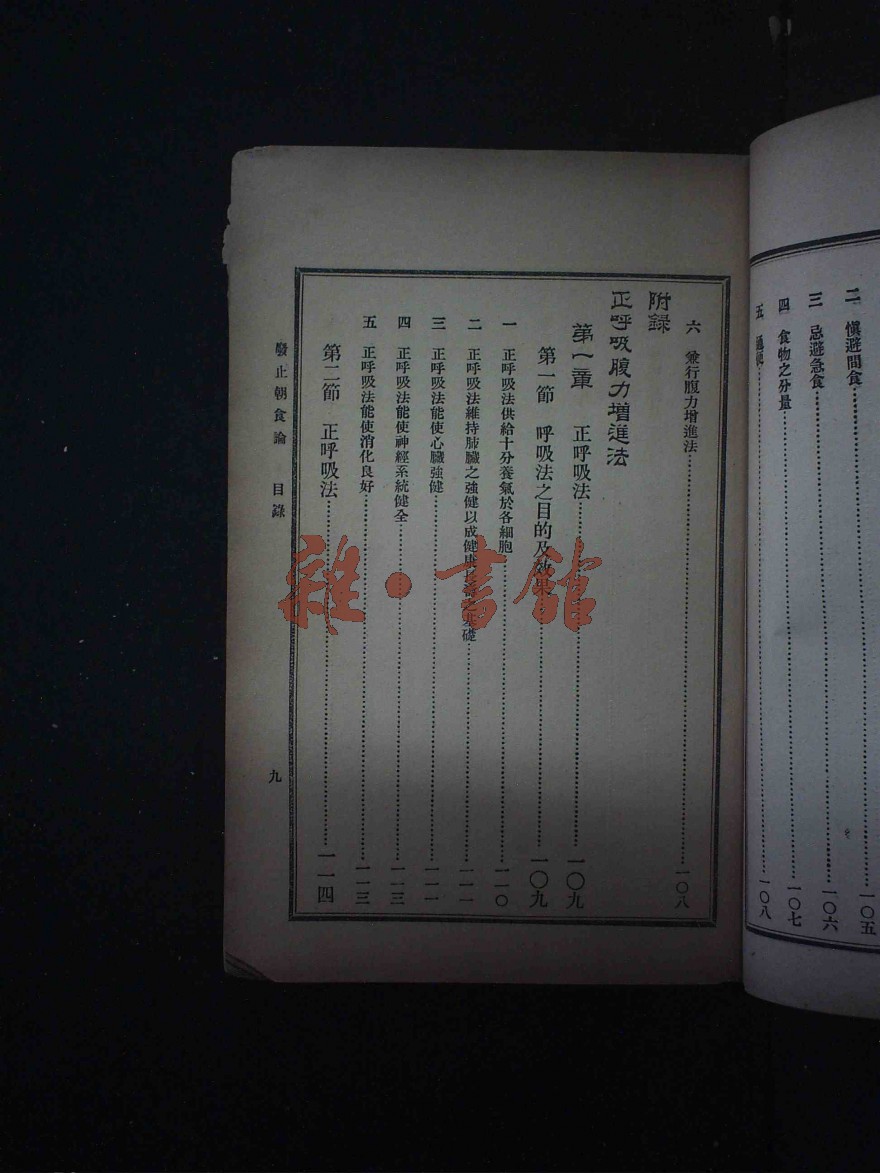 二 愼避間食……一〇五
三 忌避急食……一〇六
四 食物之分量……一〇七
五 通便……一〇八
六 兼行腹力增進法……一〇八
附録
正呼吸腹力增進法
第一章 正呼吸法……一〇九
第一節 呼吸法之目的及效果……一〇九
一 正呼吸法供給十分養氣於各細胞……一一〇
二 正呼吸法維持肺臟之強健以成健康之基礎……一一一
三 正呼吸法能使心臟強健……一一一
四 正呼吸法能使神經系統健全……一一三
五 正呼吸法能使消化良好……一一三
第二節 正呼吸法……一一四
廢止朝食論 目錄
九
雜·書館